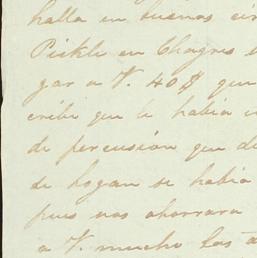 halla en buenas cir
Pickle en Chagres
gar a V. 40$ que
cribe que le habia
de percusión que de
de hogan se habia
pues nos ahorrara
a V. mucho las a